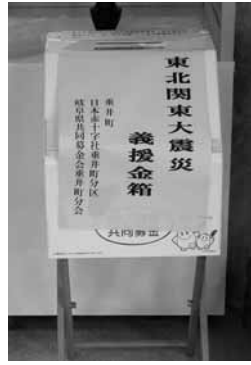 東北関東大震災
義援金箱
垂井町
日本赤十字社垂井町分区
岐阜県共同募金会垂井町分会
共同募金